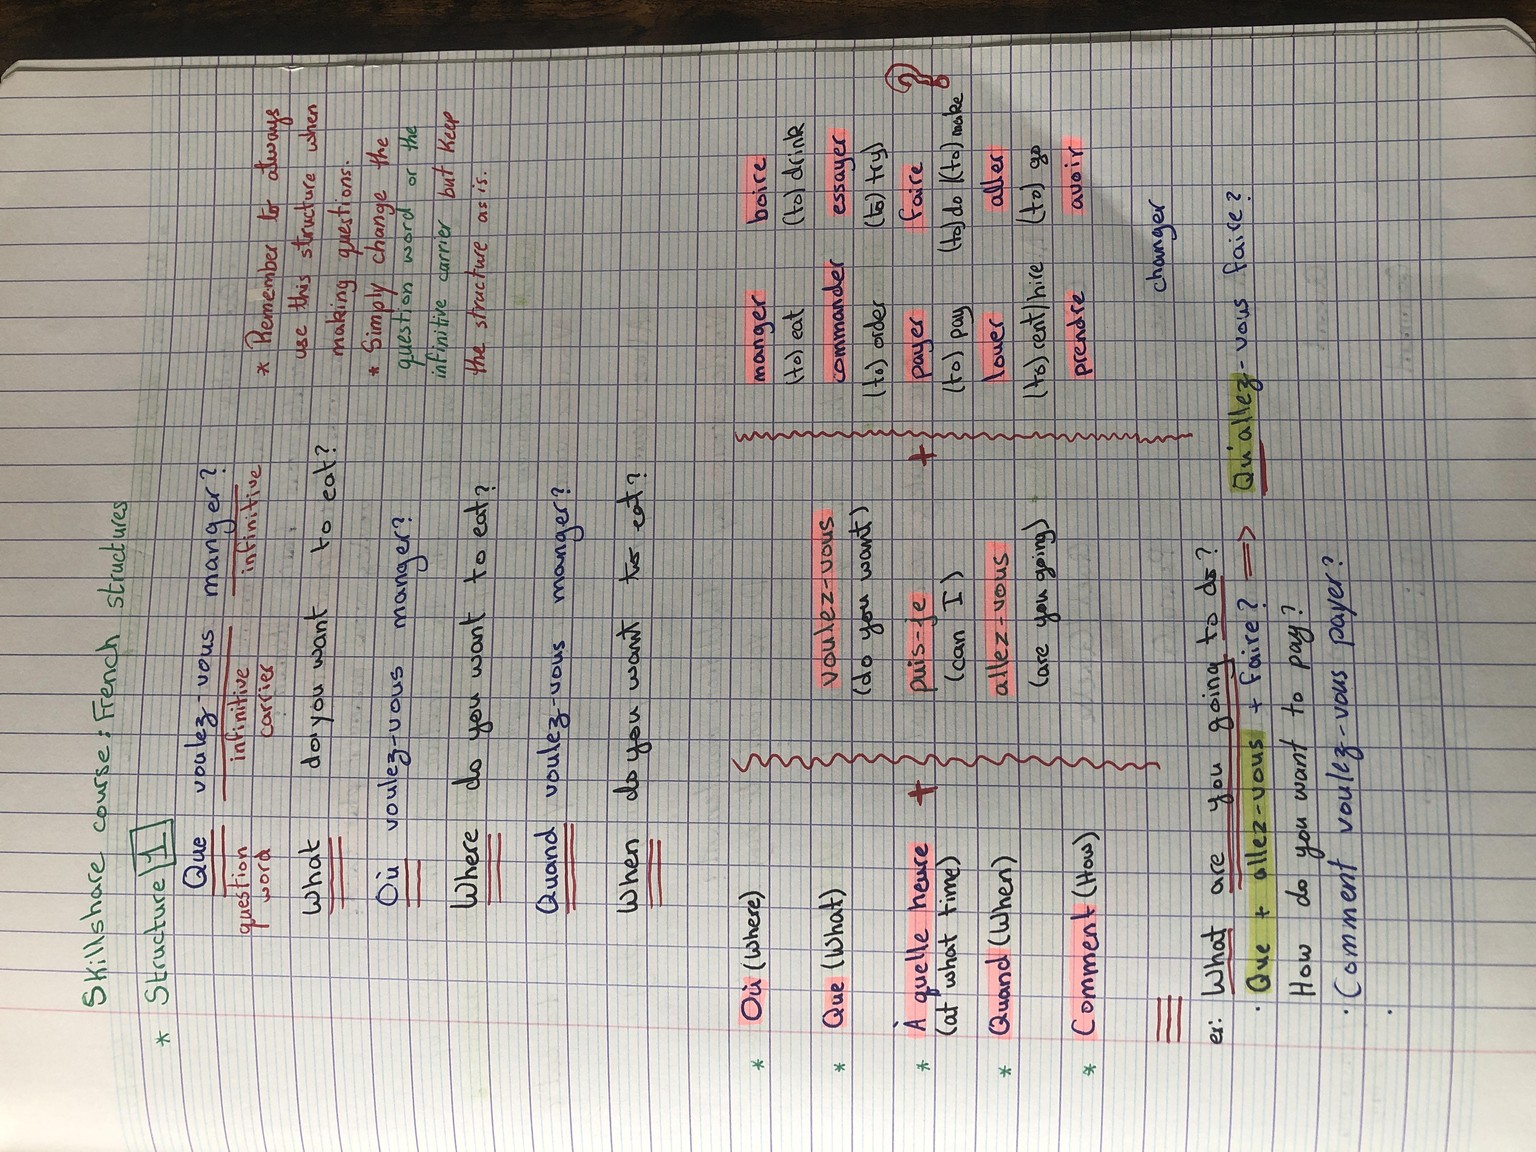 Skillshare course: French structures
* Structure 1
Que voulez-vous manger?
question word infinitive carrier infinitive
What do you want to eat?
Où voulez-vous manger?
Where do you want to eat?
Quand voulez-vous manger?
When do you want to eat?
* Remember to always
use this structure when
making questions.
* Simply change the
question word or the
infinitive carrier but keep
the structure as is.
* Où (Where)
* Que (What)
* À quelle heure
(at what time)
* Quand (When)
* Comment (How)
+
voulez-vous
(do you want)
puis-je
(can I)
allez-vous
(are you going)
+
manger boire
(to) eat (to) drink
commander essayer
(to) order (to) try)
payer faire ?
(to) pay (to) do (to) make
louer aller
(to) rent/hire (to) go
prendre avoir
changer
ex: What are you going to do?
. Que + allez-vous + faire? => Qu'allez-vous faire?
How do you want to pay?
. Comment voulez-vous payer?
.